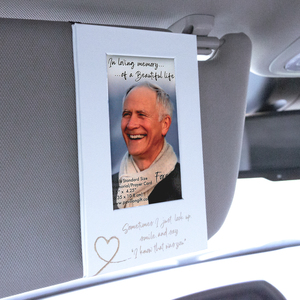 In loving memory...
...of a Beautiful life
Standard Size
Prayer Card
x 4.25"
Sometimes I just look up
smile and say
"I know that was you"